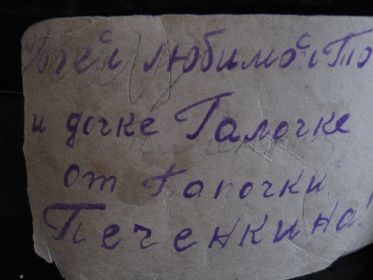 Моей любимой То
и дочке Галочке
от Папочки
Печенкина!